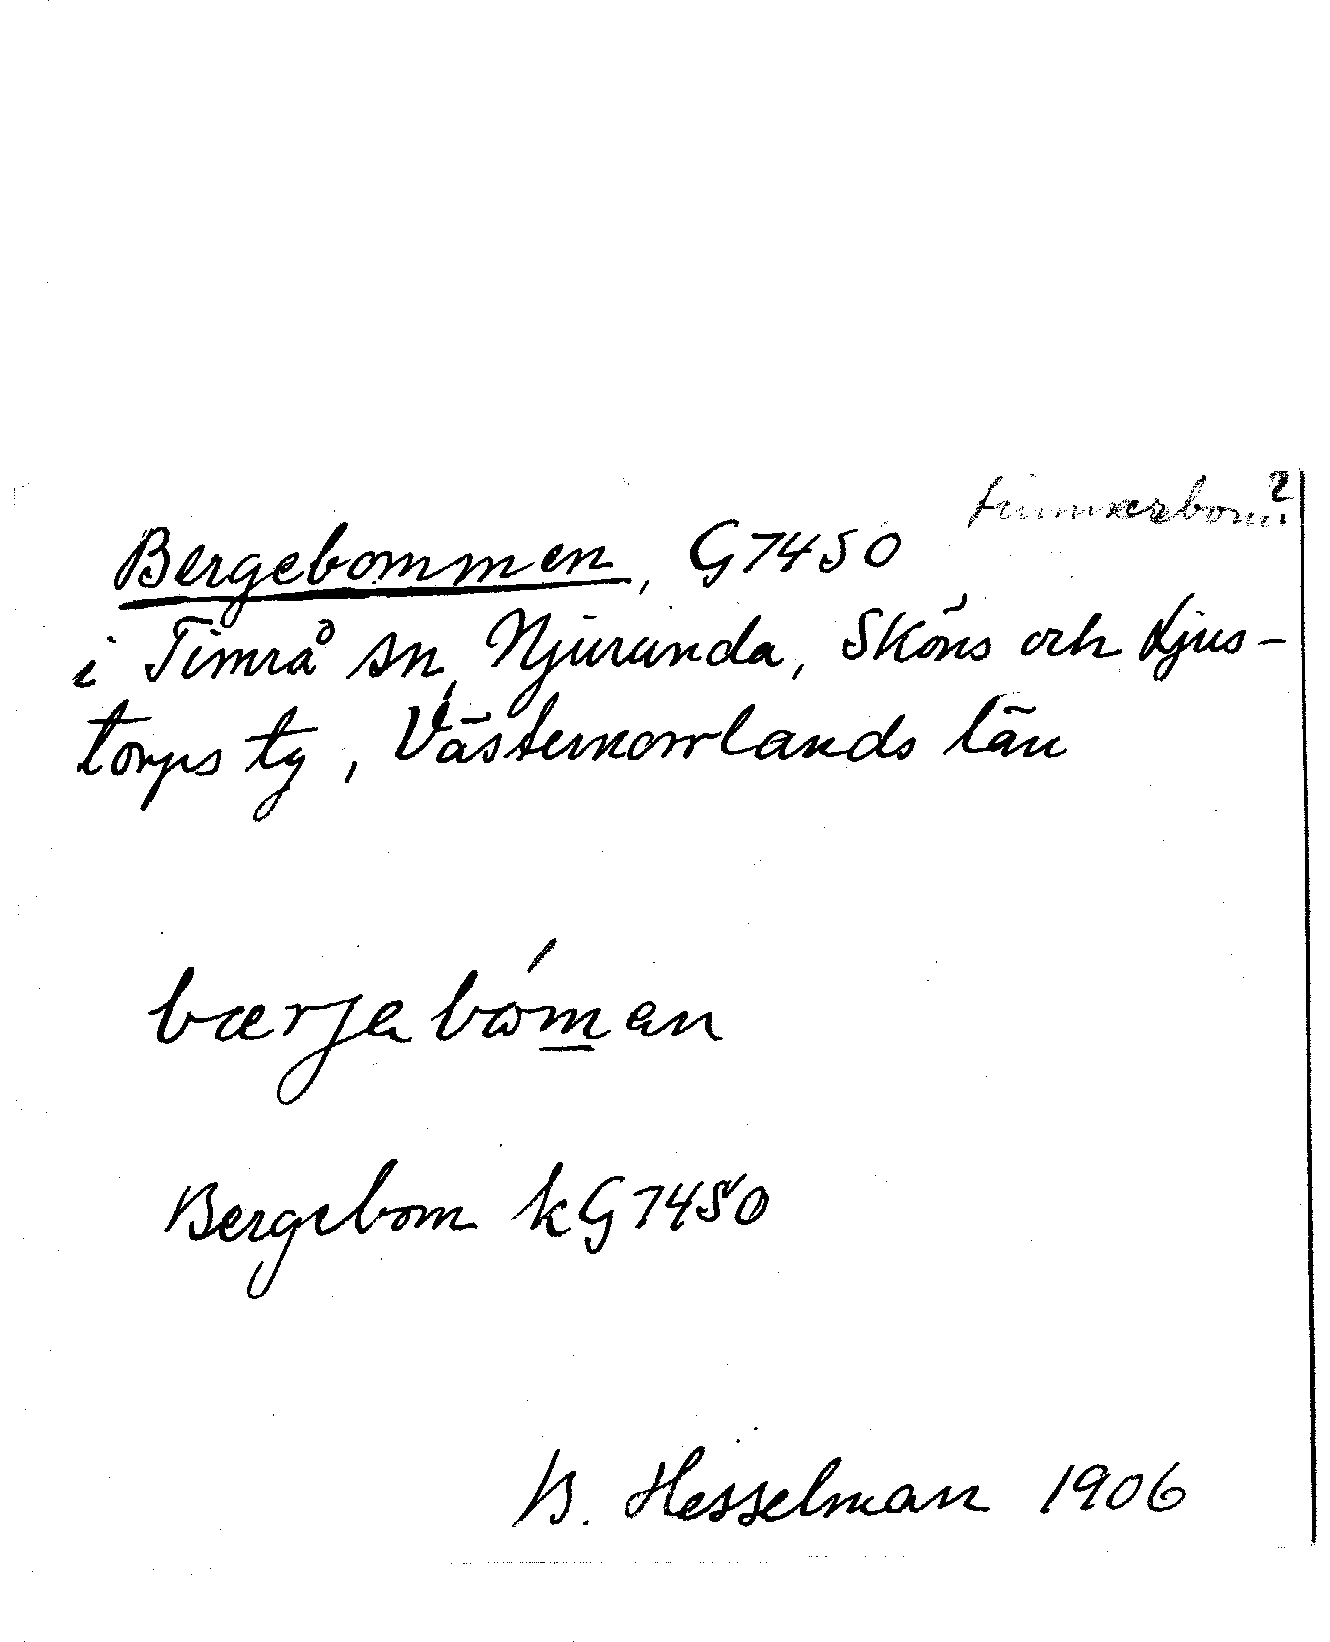 timmerbom?
Bergebommen, G7450
i Timrå sn, Njurunda, Sköns och Ljus-
torps tg, Västernorrlands län
bærjabóman
Bergebom kG7450
B. Hesselman 1906